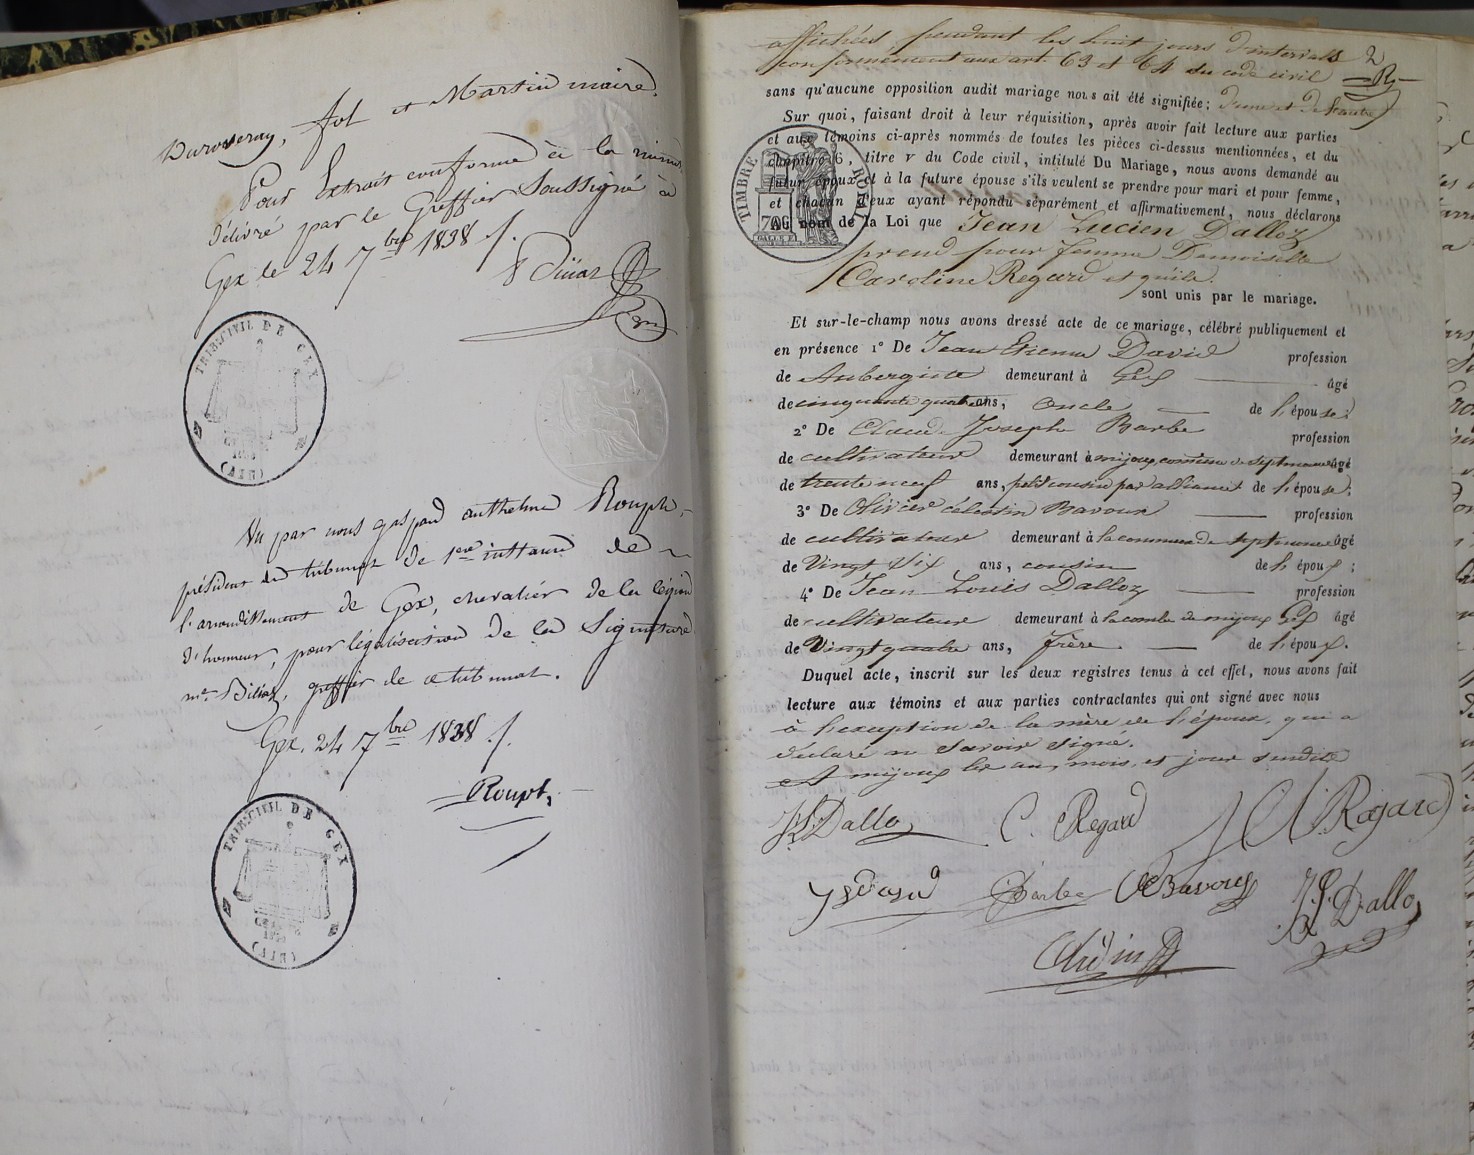 Durovray, fol et Martin maire.
Pour Extrait conforme à la minute
Délivré par le Greffier Soussigné à
Gex le 24 7bre 1838 /.
TRIB. CIVIL DE GEX
(AIN)
Vu par nous gaspard anthelme Rouph,
président du tribunal de 1ere instance de
l'arrondissement de Gex, chevalier de la légion
d'honneur, pour légalisation de la Signature
me greffier de ce tribunal.
Gex, 24 7bre 1838 /.
Roupt,
TRIB. CIVIL DE GEX
(AIN)
affichées, pendant les huit jours d'intervalle
conformément aux art. 63 et 64 du code civil
2
sans qu'aucune opposition audit mariage nous ait été signifiée; d'une et d'autre
Sur quoi, faisant droit à leur réquisition, après avoir fait lecture aux parties
et aux témoins ci-après nommés de toutes les pièces ci-dessus mentionnées, et du
chapitre 6, titre v du Code civil, intitulé Du Mariage, nous avons demandé au
futur époux et à la future épouse s'ils veulent se prendre pour mari et pour femme,
et chacun d'eux ayant répondu séparément et affirmativement, nous déclarons
Au nom de la Loi que Jean Lucien Dalloz
TIMBRE ROYAL
prend pour femme Demoiselle
Caroline Regard et qu'ils
sont unis par le mariage.
Et sur-le-champ nous avons dressé acte de ce mariage, célébré publiquement et
en présence 1° De Jean Etienne David profession
de Aubergiste demeurant à Gex âgé
de cinquante quatre ans, oncle de l'épouse;
2° De Claude Joseph Barbe profession
de cultivateur demeurant à mijoux, commune de septmoncel âgé
de trente neuf ans, petit cousin par alliance de l'épouse;
3° De Olivier célestin Bavoux profession
de cultivateur demeurant à la commune de septmoncel âgé
de Vingt Six ans, cousin de l'époux;
4° De Jean Louis Dalloz profession
de cultivateur demeurant à la combe de mijoux Gex âgé
de Vingt quatre ans, frère de l'époux.
Duquel acte, inscrit sur les deux registres tenus à cet effet, nous avons fait
lecture aux témoins et aux parties contractantes qui ont signé avec nous
à l'exception de la mère de l'époux, qui a
déclaré ne savoir signé.
A mijoux les an, mois, et jour susdits
JL Dalloz C. Regard Regard
Barbe Bavoux J. L. Dalloz